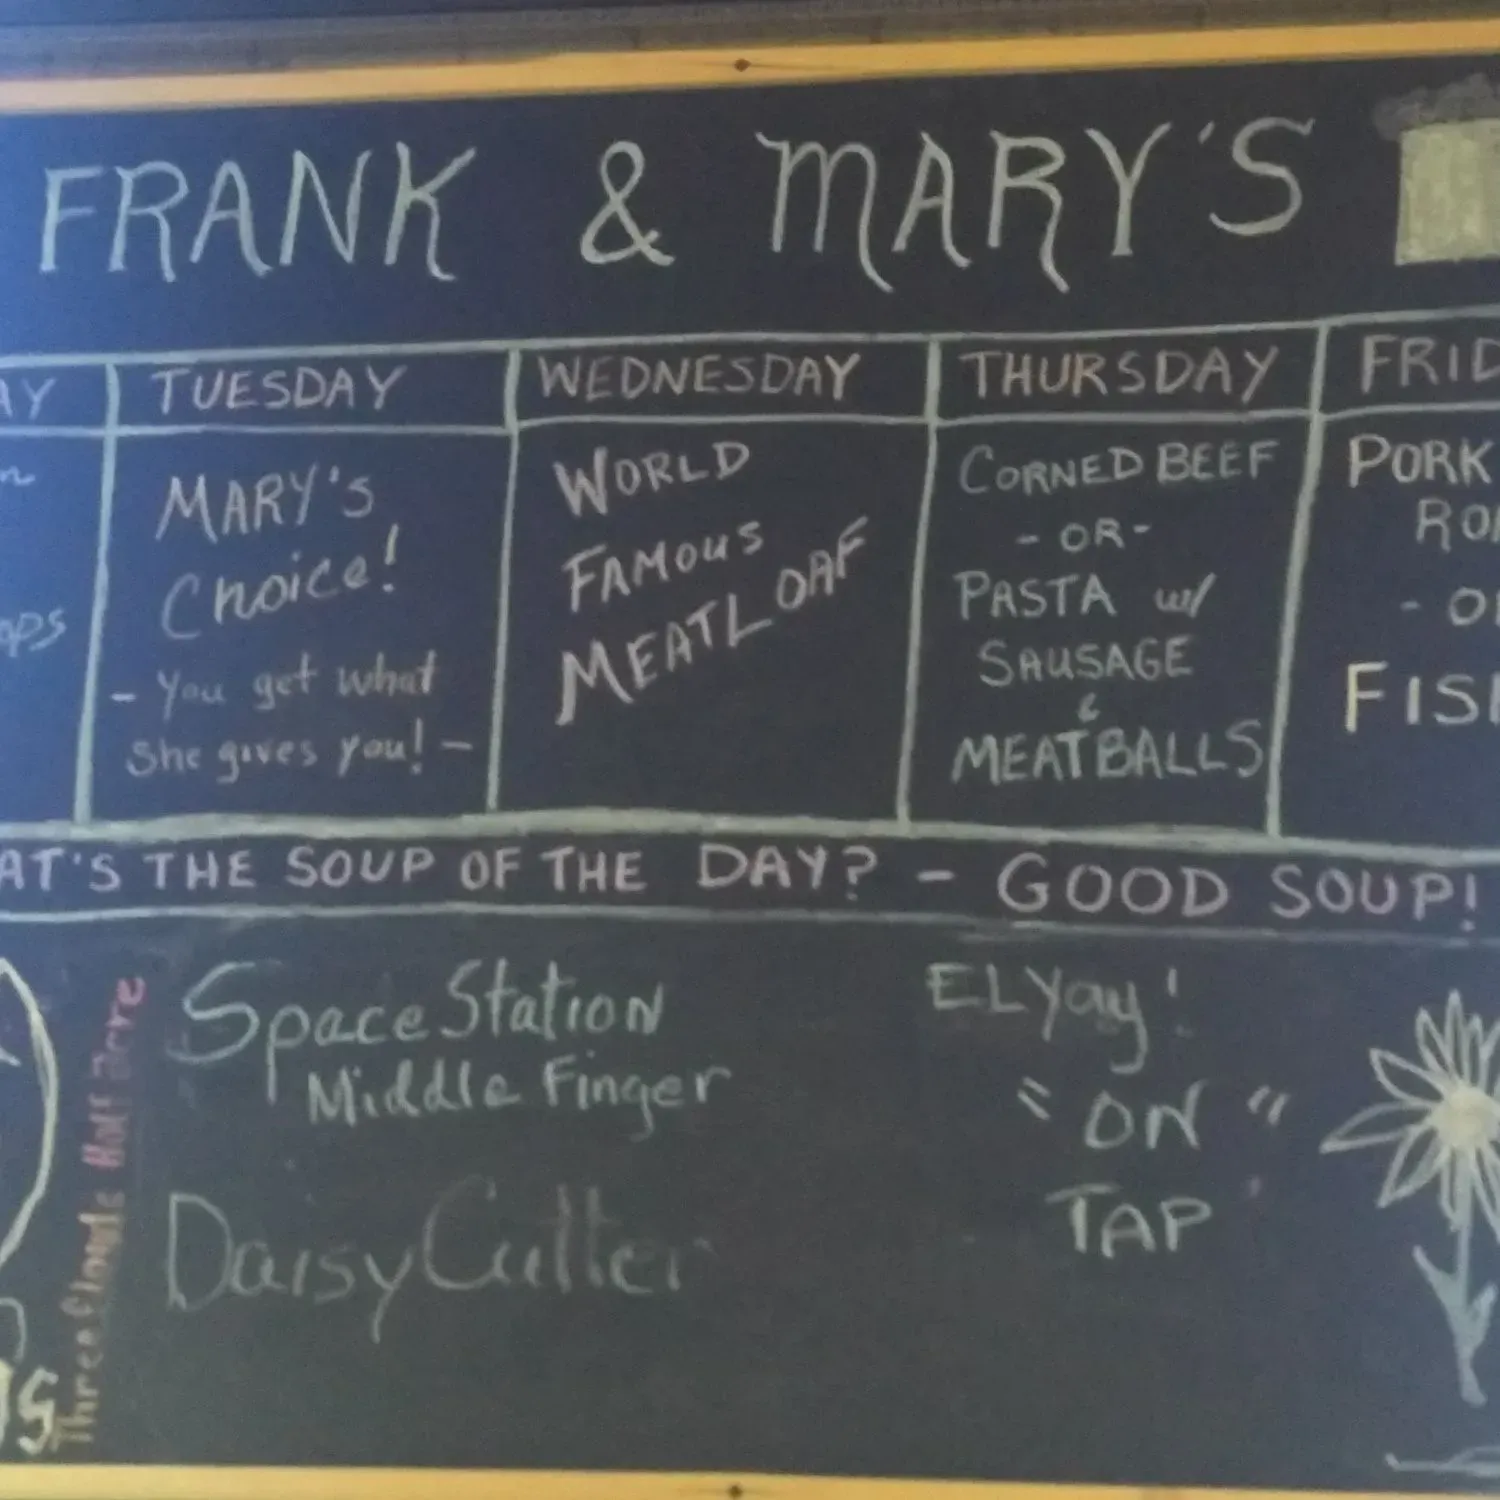 FRANK & MARY'S
AY
TUESDAY
WEDNESDAY
THURSDAY
FRID
MARY'S
Choice!
- You get what
She gives you! -
WORLD
FAMOUS
MEATLOAF
CORNED BEEF
- OR -
PASTA w/
SAUSAGE
&
MEATBALLS
PORK
RO
- O
FIS
AT'S THE SOUP OF THE DAY? - GOOD SOUP!
Space Station
Middle Finger
Daisy Cutter
ELYay!
"ON"
TAP
Half Acre